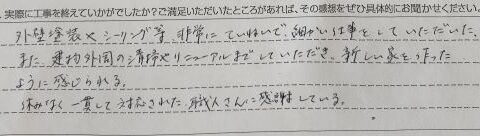 実際に工事を終えていかがでしたか?ご満足いただいたところがあれば、その感想をぜひ具体的にお聞かせください。
外壁塗装やシーリング等、非常にていねいで、細かい仕事をしていただいた。
また、建物外周の清掃やリニューアルまでしていただき、新しい家を造った
ように感じられる。
休みなく一貫して対応された職人さんに感謝している。